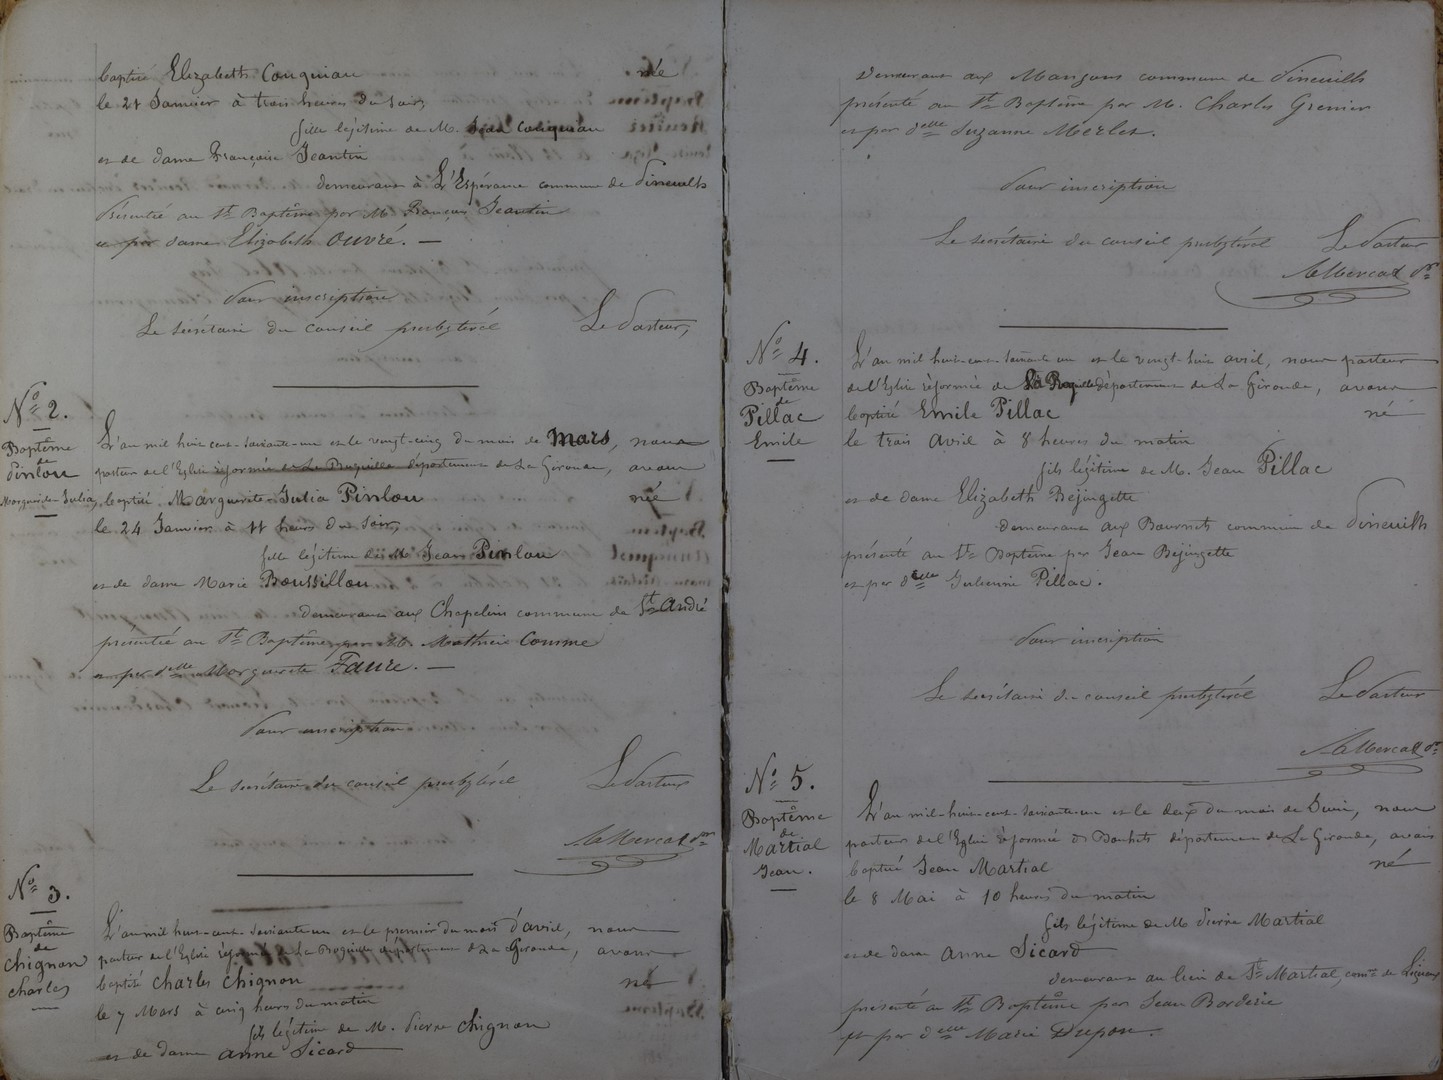 baptisé Elizabeth Couguiau née
le 21 Janvier à trois heures du soir,
fille légitime de M. Jean Couguiau
et de dame Françoise Jeantin
demeurant à L'Espérance commune de Pineuilh
Présentée au St Baptême par M. François Jeantin
et par dame Elizabeth Ouvré. —
Pour inscription
Le secrétaire du conseil presbytéral Le Pasteur,
No 2.
Baptême
de
Pinlou
Marguerite-Julia,
L'an mil huit-cent-soixante-un et le vingt-cinq du mois de Mars, nous
pasteur de l'Eglise réformée de La Roquille département de La Gironde, avons
baptisé Marguerite-Julia Pinlou née
le 24 Janvier à 11 heures du soir,
fille légitime de M. Jean Pinlou
et de dame Marie Boussillou
demeurant aux Chapelins commune de St André
présentée au St Baptême par M. Mathieu Courme
et par delle Marguerite Faure. —
Pour inscription
Le secrétaire du conseil presbytéral Le Pasteur
No 3.
Baptême
de
Chignon
Charles
L'an mil huit-cent-soixante-un et le premier du mois d'avril, nous
pasteur de l'Eglise réformée de La Roquille département de La Gironde, avons
baptisé Charles Chignon né
le 7 Mars à cinq heures du matin
fils légitime de M. Pierre Chignon
et de dame Anne Sicard
demeurant aux Mangons commune de Pineuilh
présenté au St Baptême par M. Charles Grenier
et par delle Suzanne Merlet.
Pour inscription
Le secrétaire du conseil presbytéral Le Pasteur
No 4.
Baptême
de
Pillac
Emile
L'an mil huit-cent-soixante un et le vingt-huit avril, nous pasteur
de l'Eglise réformée de La Roquille département de La Gironde, avons
baptisé Emile Pillac né
le trois Avril à 8 heures du matin
fils légitime de M. Jean Pillac
et de dame Elizabeth Bejingette
demeurant aux Bournets commune de Pineuilh
présenté au St Baptême par Jean Bejingette
et par delle Pillac.
Pour inscription
Le secrétaire du conseil presbytéral Le Pasteur
No 5.
Baptême
de
Martial
Jean.
L'an mil-huit-cent-soixante-un et le deux du mois de Juin, nous
pasteur de l'Eglise réformée département de La Gironde, avons
baptisé Jean Martial né
le 8 Mai à 10 heures du matin
fils légitime de M. Pierre Martial
et de dame Anne Sicard
demeurant au lieu de St Martial, comne de
présenté au St Baptême par Jean Borderie
et par delle Marie Dupon.